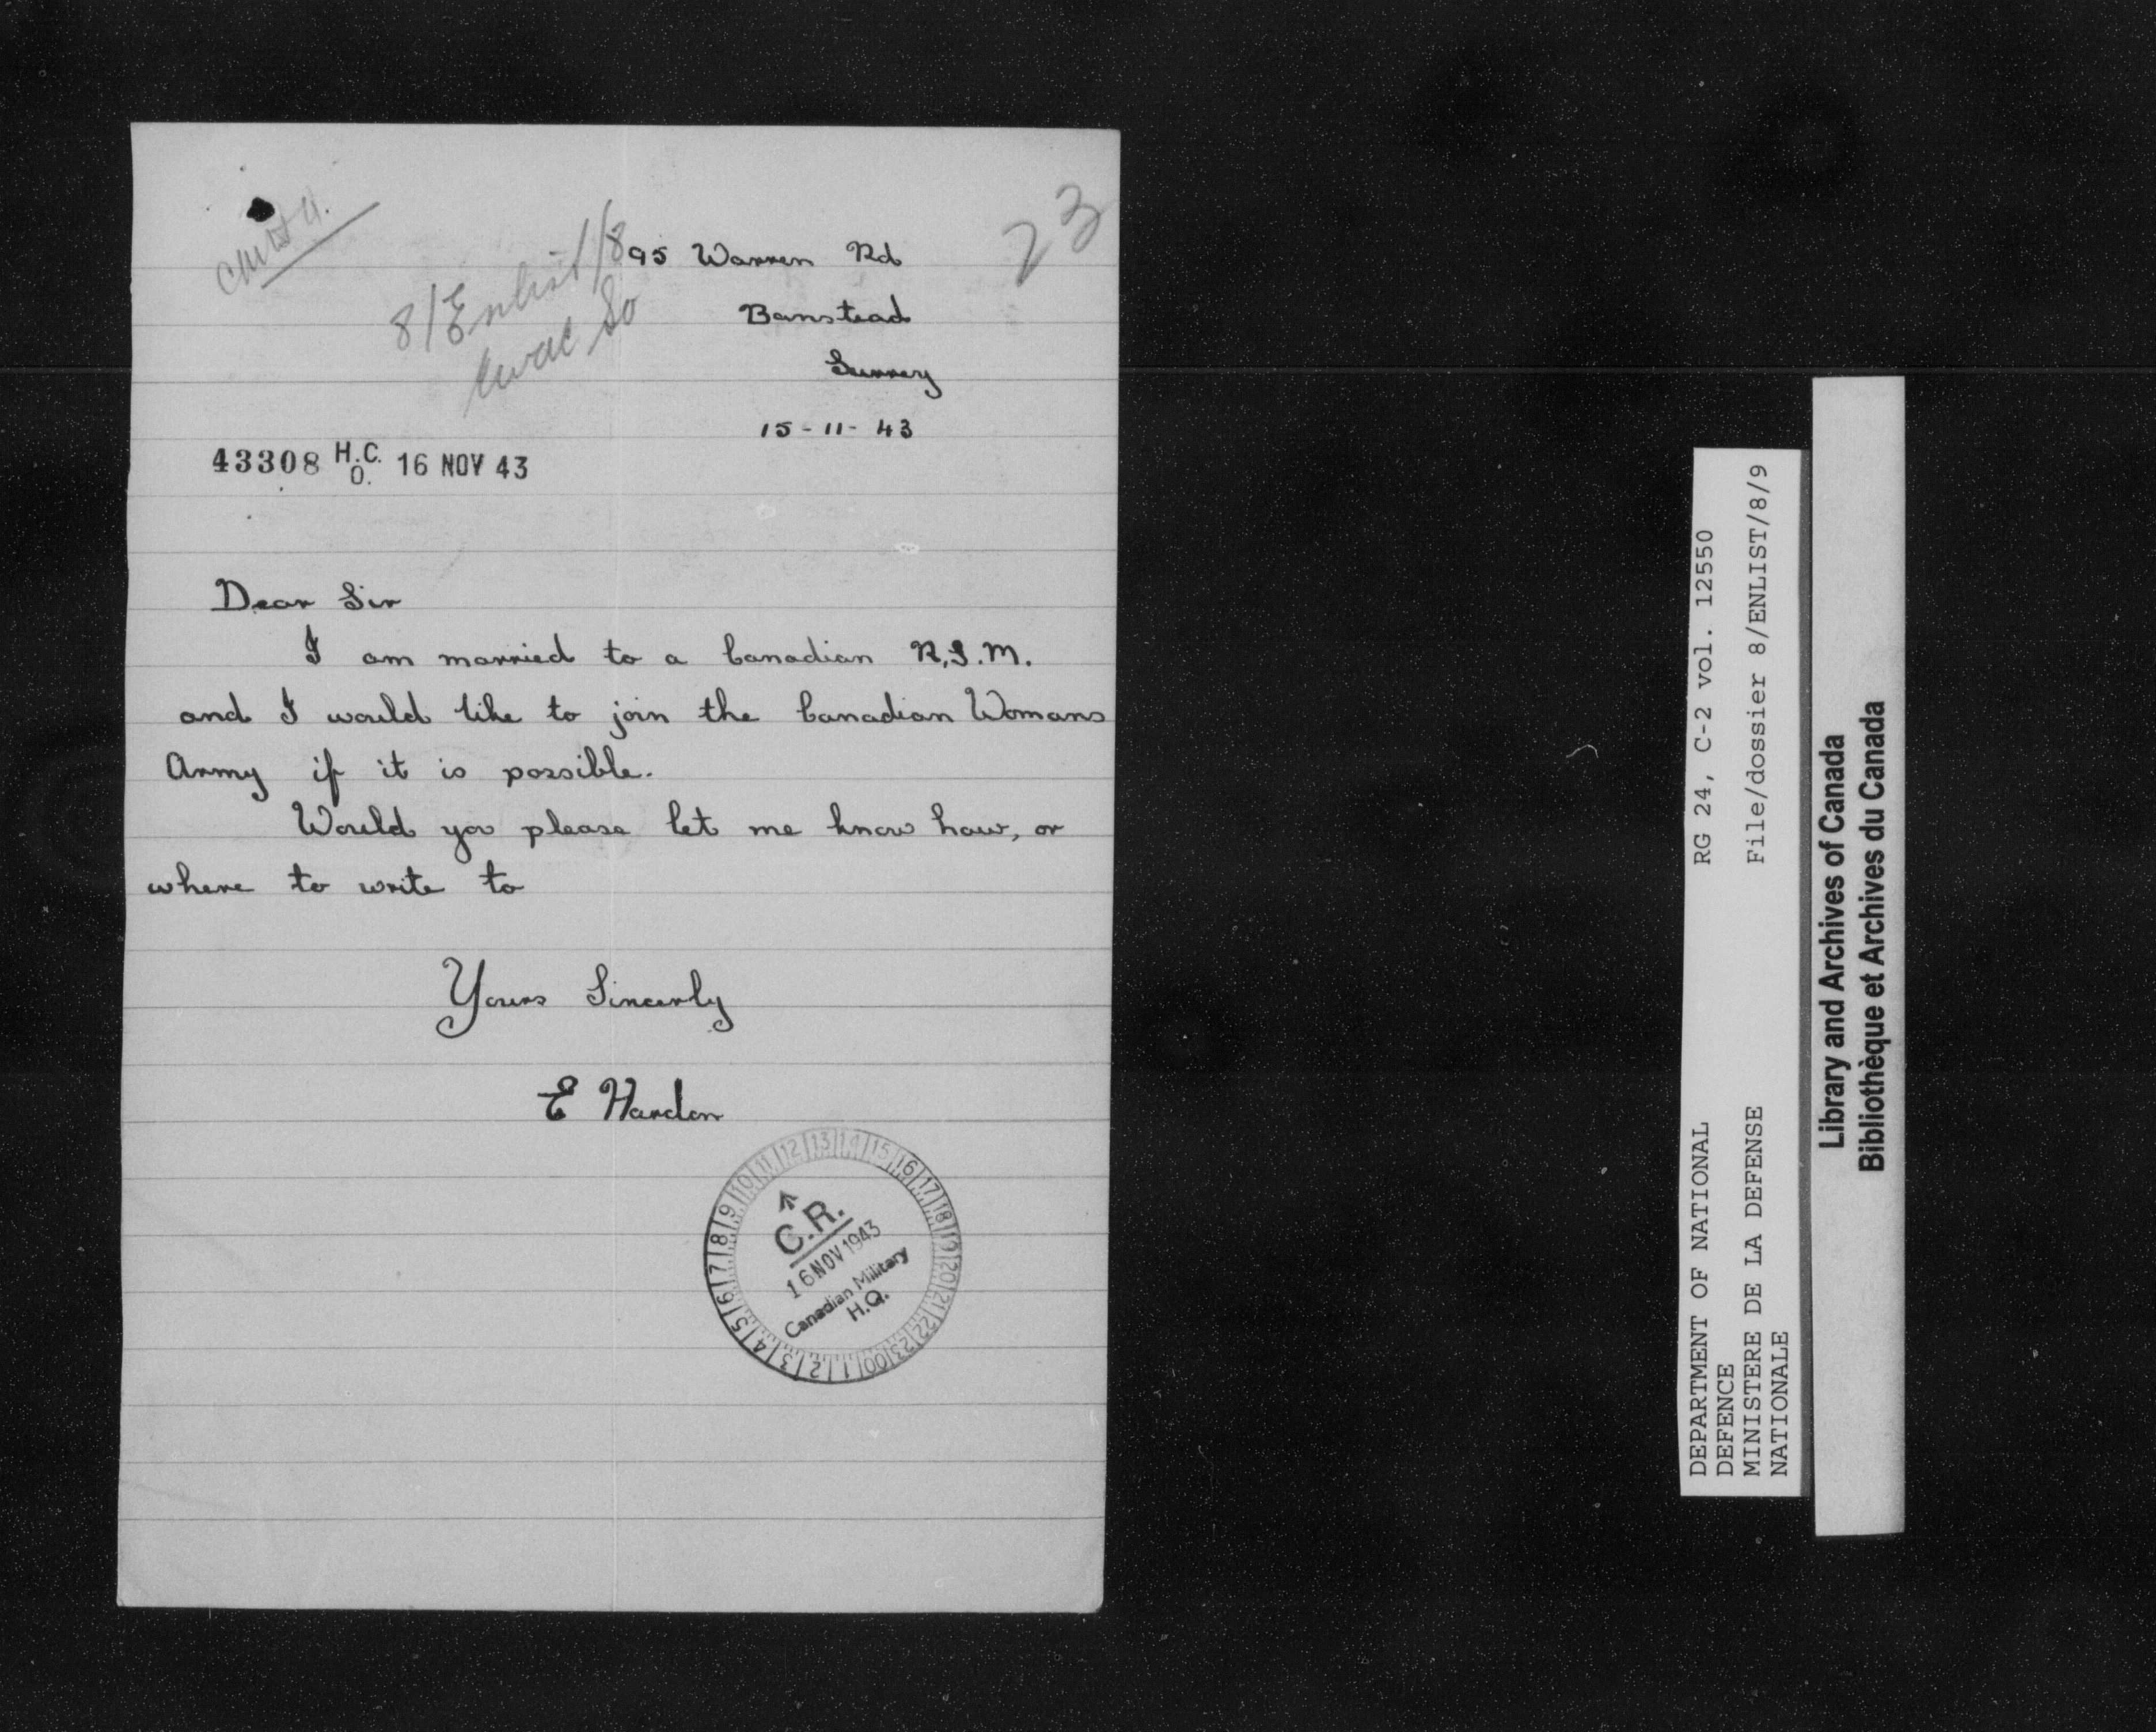 23
8/Enlist/8
95 Warren Rd
Banstead
Surrey
15-11-43
43308 H.C.O. 16 NOV 43
Dear Sir
I am married to a Canadian R.S.M.
and I would like to join the Canadian Womans
Army if it is possible.
Would you please let me know how, or
where to write to
Yours Sincerly
E Harden
9 10 11 12 13 14 15 16 17 18 19 20 21 22 23 00 1 2 3 4 5 6 7 8
C.R.
16 NOV 1943
Canadian Military
H.Q.
DEPARTMENT OF NATIONAL
DEFENCE
MINISTERE DE LA DEFENSE
NATIONALE
RG 24, C-2 vol. 12550
File/dossier 8/ENLIST/8/9
Library and Archives of Canada
Bibliothèque et Archives du Canada